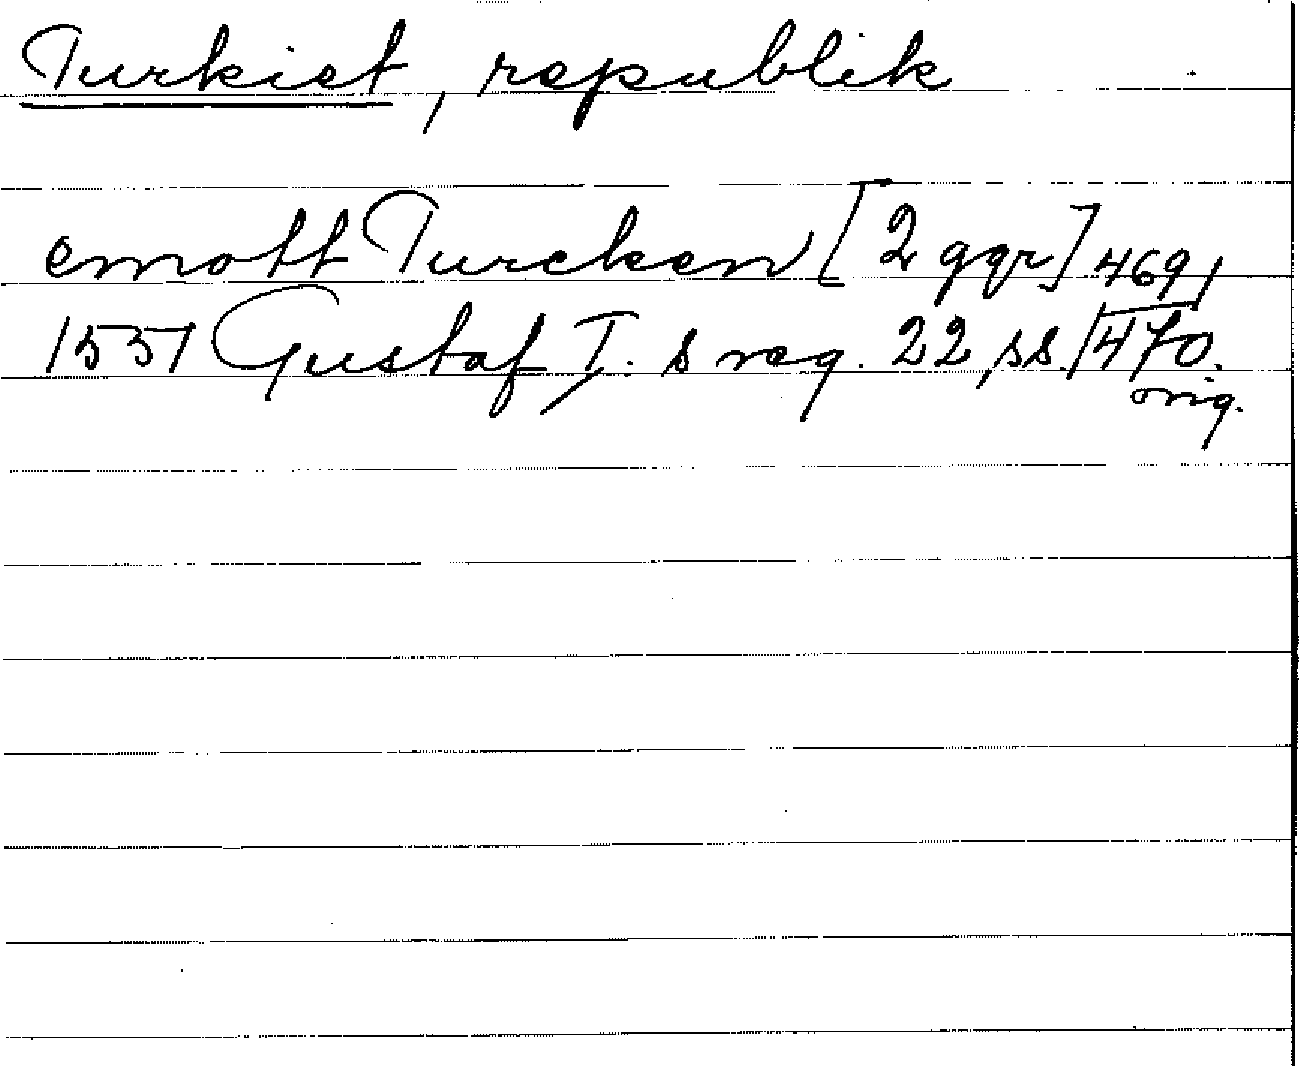 Turkiet, republik
emott Turcken [2 ggr] 469,
1551 Gustaf I:s reg. 22, ss. 470.
orig.